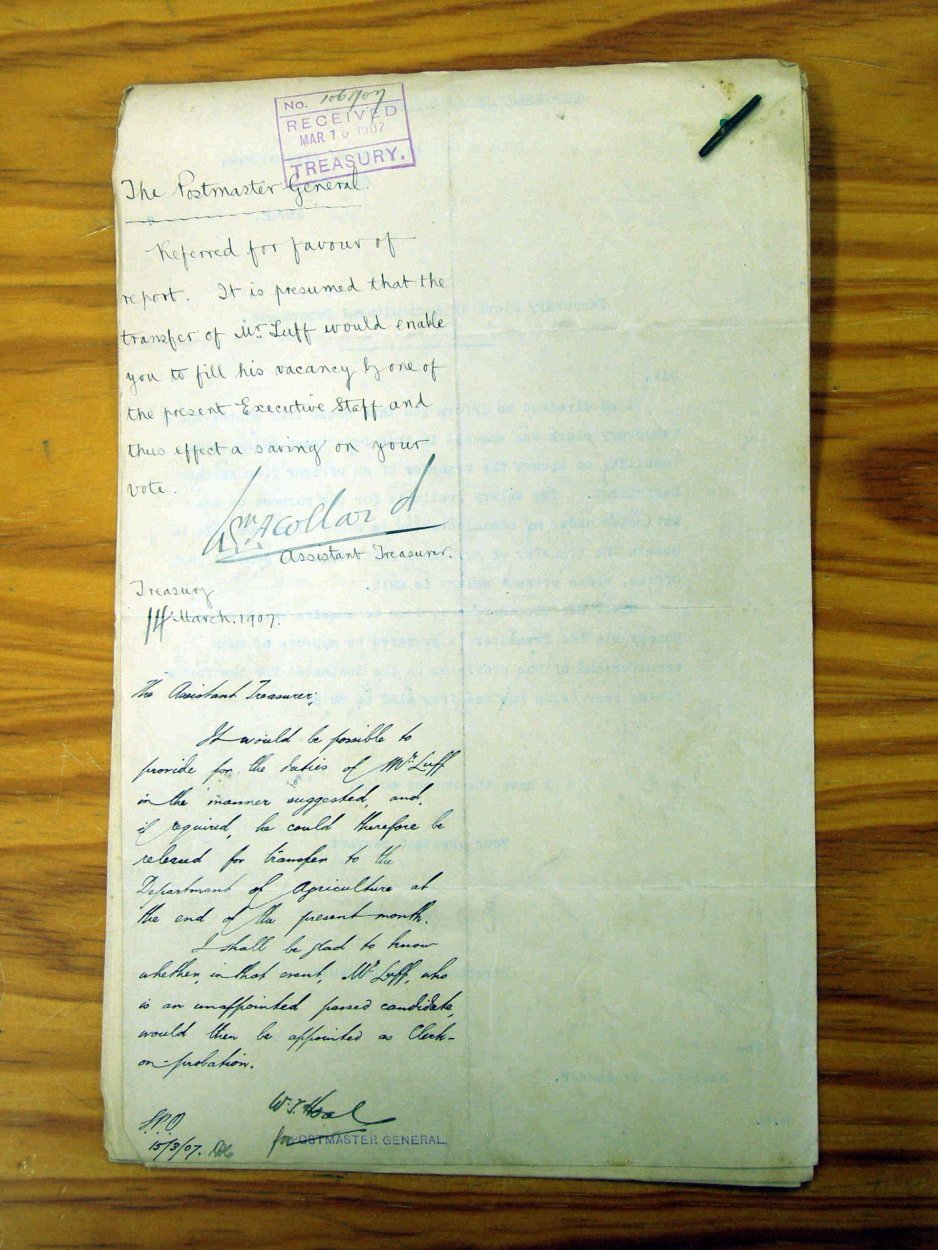 No. 1068/07
RECEIVED
MAR 16 1907
TREASURY.
The Postmaster General
Referred for favour of
report. It is presumed that the
transfer of Mr. Luff would enable
you to fill his vacancy by one of
the present Executive Staff and
thus effect a saving on your
vote.
Collard
Assistant Treasurer.
Treasury
14 March, 1907.
The Assistant Treasurer;
It would be possible to
provide for the duties of Mr. Luff
in the manner suggested, and,
if required, he could therefore be
released for transfer to the
Department of Agriculture at
the end of the present month.
I shall be glad to know
whether, in that event, Mr. Luff, who
is an unappointed passed candidate,
would then be appointed as Clerk-
on-probation.
W. T. Hoal
for POSTMASTER GENERAL.
G.P.O.
15/3/07.